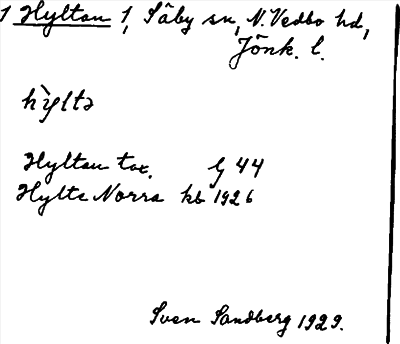 1 Hyltan 1, Säby sn, N. Vedbo hd,
Jönk. l.
hỳltə
Hyltan tax. G 44
Hylte Norra kb 1926
Sven Sandberg 1929.